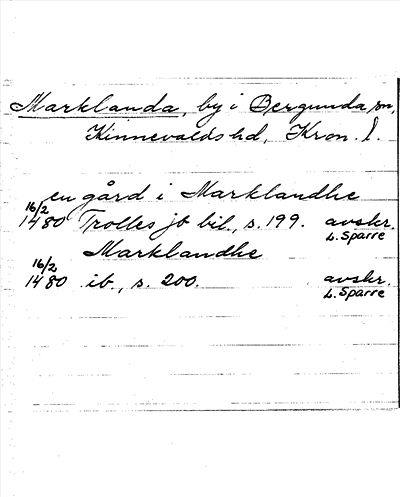 Marklanda, by i Bergunda sn,
Kinnevalds hd, Kron. l.
en gård i Marklandhe
16/2 1480 Trolles jb bil., s. 199. avskr. L. Sparre
Marklandhe
16/2 1480 ib., s. 200. avskr. L. Sparre